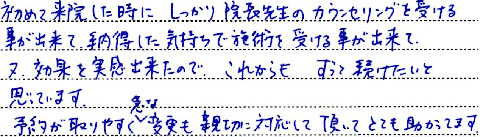 初めて来院した時に しっかり院長先生のカウンセリングを受ける
事が出来て、納得した気持ちで施術を受ける事が出来て、
又、効果を実感出来たので、これからも ずっと続けたいと
思っています。
予約が取りやすく急な変更も親切に対応して頂いてとても助かってます